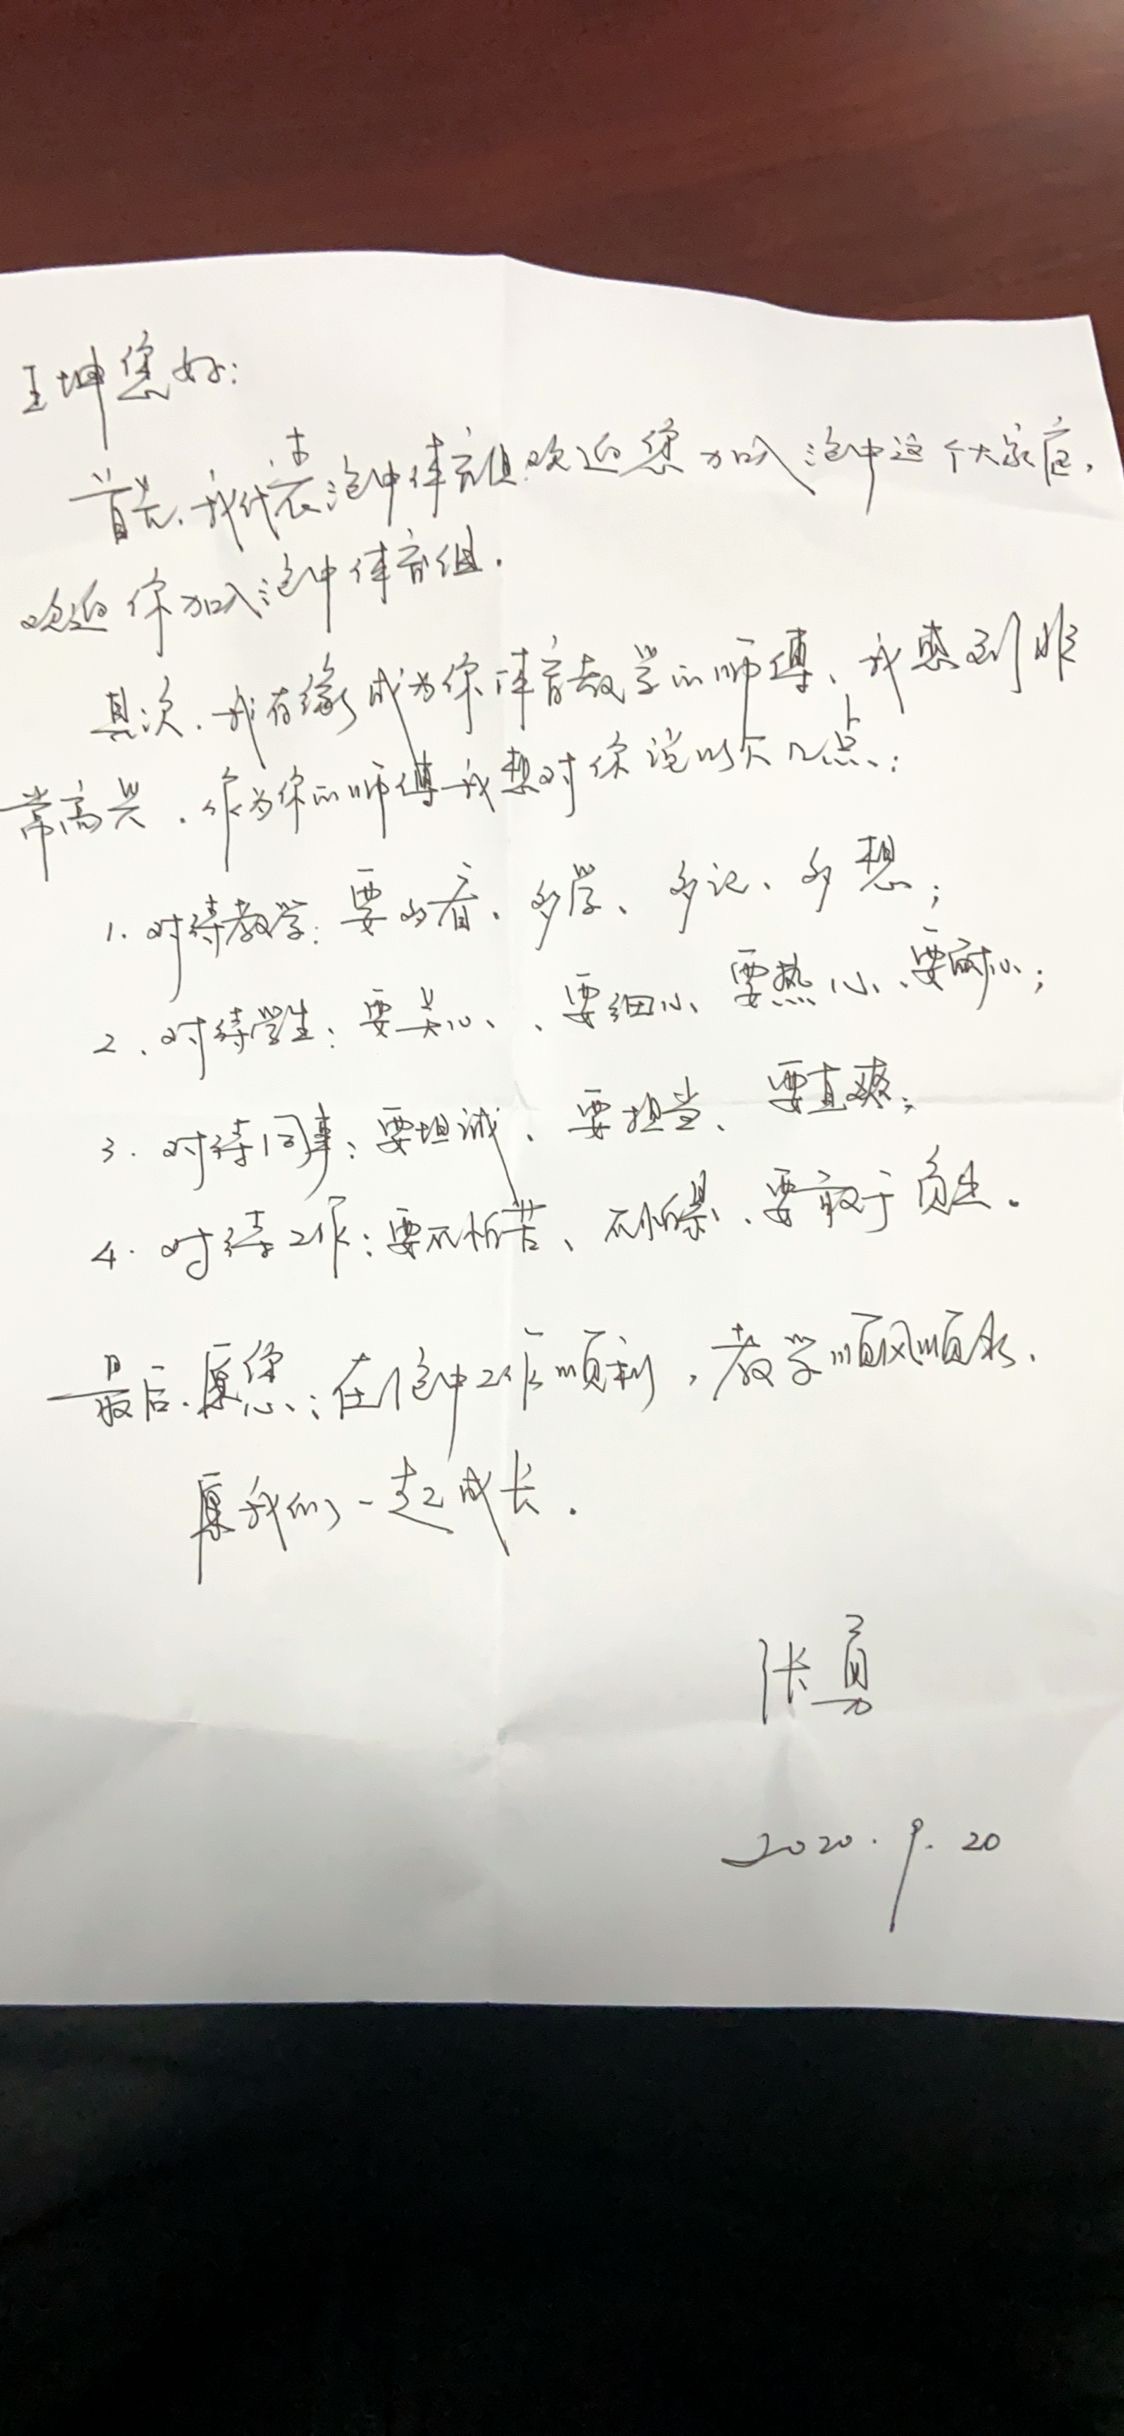 王坤您好：
首先，我代表泡中体育组欢迎您加入泡中这个大家庭，
欢迎你加入泡中体育组．
其次，我有缘成为你体育教学的师傅、我感到非
常高兴．作为你的师傅我想对你说以下几点：
1. 对待教学：要多看、多学、多记、多想；
2、对待学生：要关心、、要细心、要热心、要耐心；
3. 对待同事：要坦诚、要担当、要直爽；
4. 对待工作：要不怕苦、不怕累、要敢于负责。
最后．愿您：在泡中工作顺利，教学顺风顺水．
愿我们一起成长．
张勇
2020.9.20